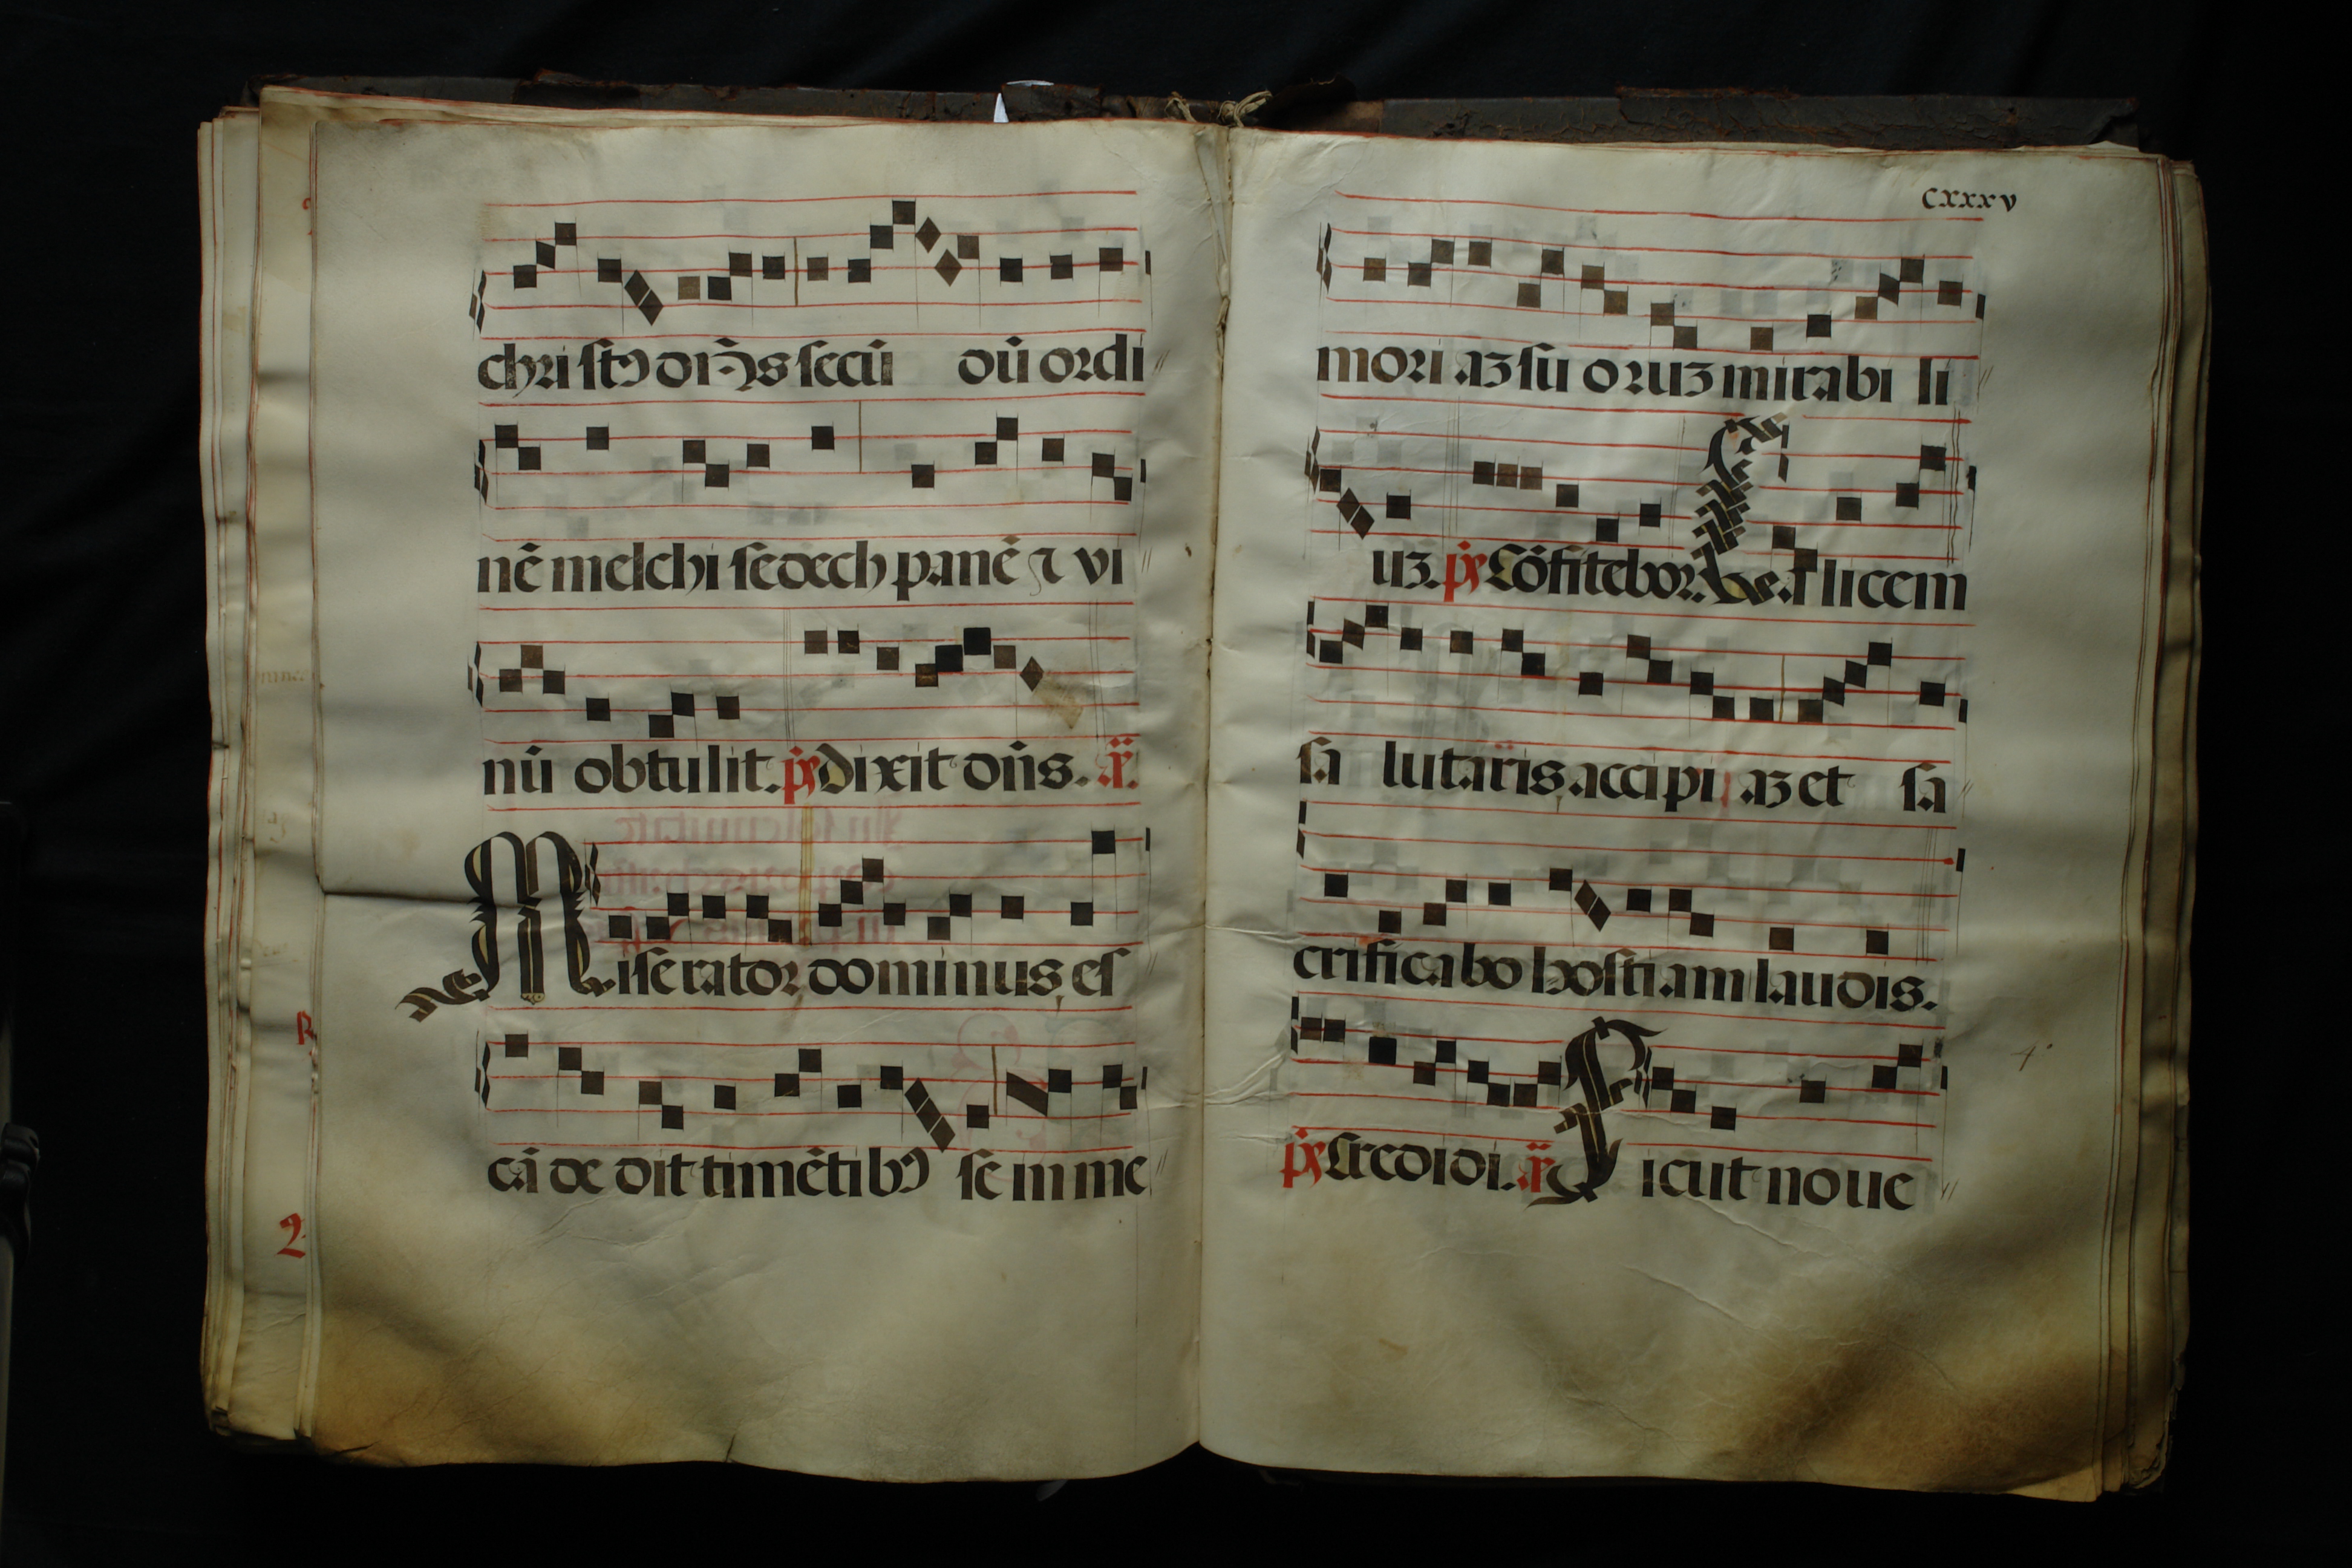 chri stꝰ dn̄s secū dū ordi
nē melchi sedech panē ⁊ vi
nū obtulit. ps̄ Dixit dn̄s. añ.
Miserator dominus es
cā de dit timētibꝰ se in me
cxxxv
mori aꝫ su oruꝫ mirabi li
uꝫ. ps̄ Cōfitebor. añ. Calicem
sa lutaris accipi aꝫ et sa
crificabo hostiam laudis.
ps̄ Credidi. añ Sicut noue